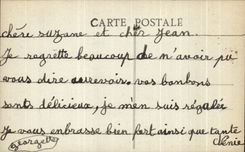 CARTE POSTALE
chère suzane et cher Jean.
Je regrette beaucoup de n'avoir pu
vous dire aurevoir, vos bonbons
sonts délicieux, je men suis régalée
je vous enbrasse bien fort ainsi que tante
Georgette